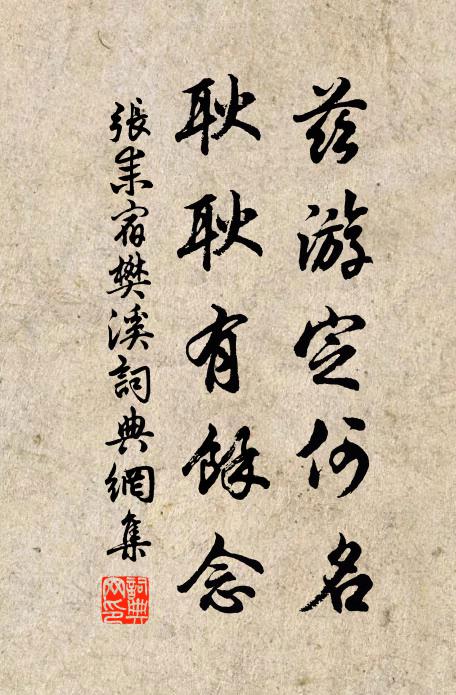 茲游定何名
耿耿有餘念
張耒宿樊溪詞典網集
詞典網印